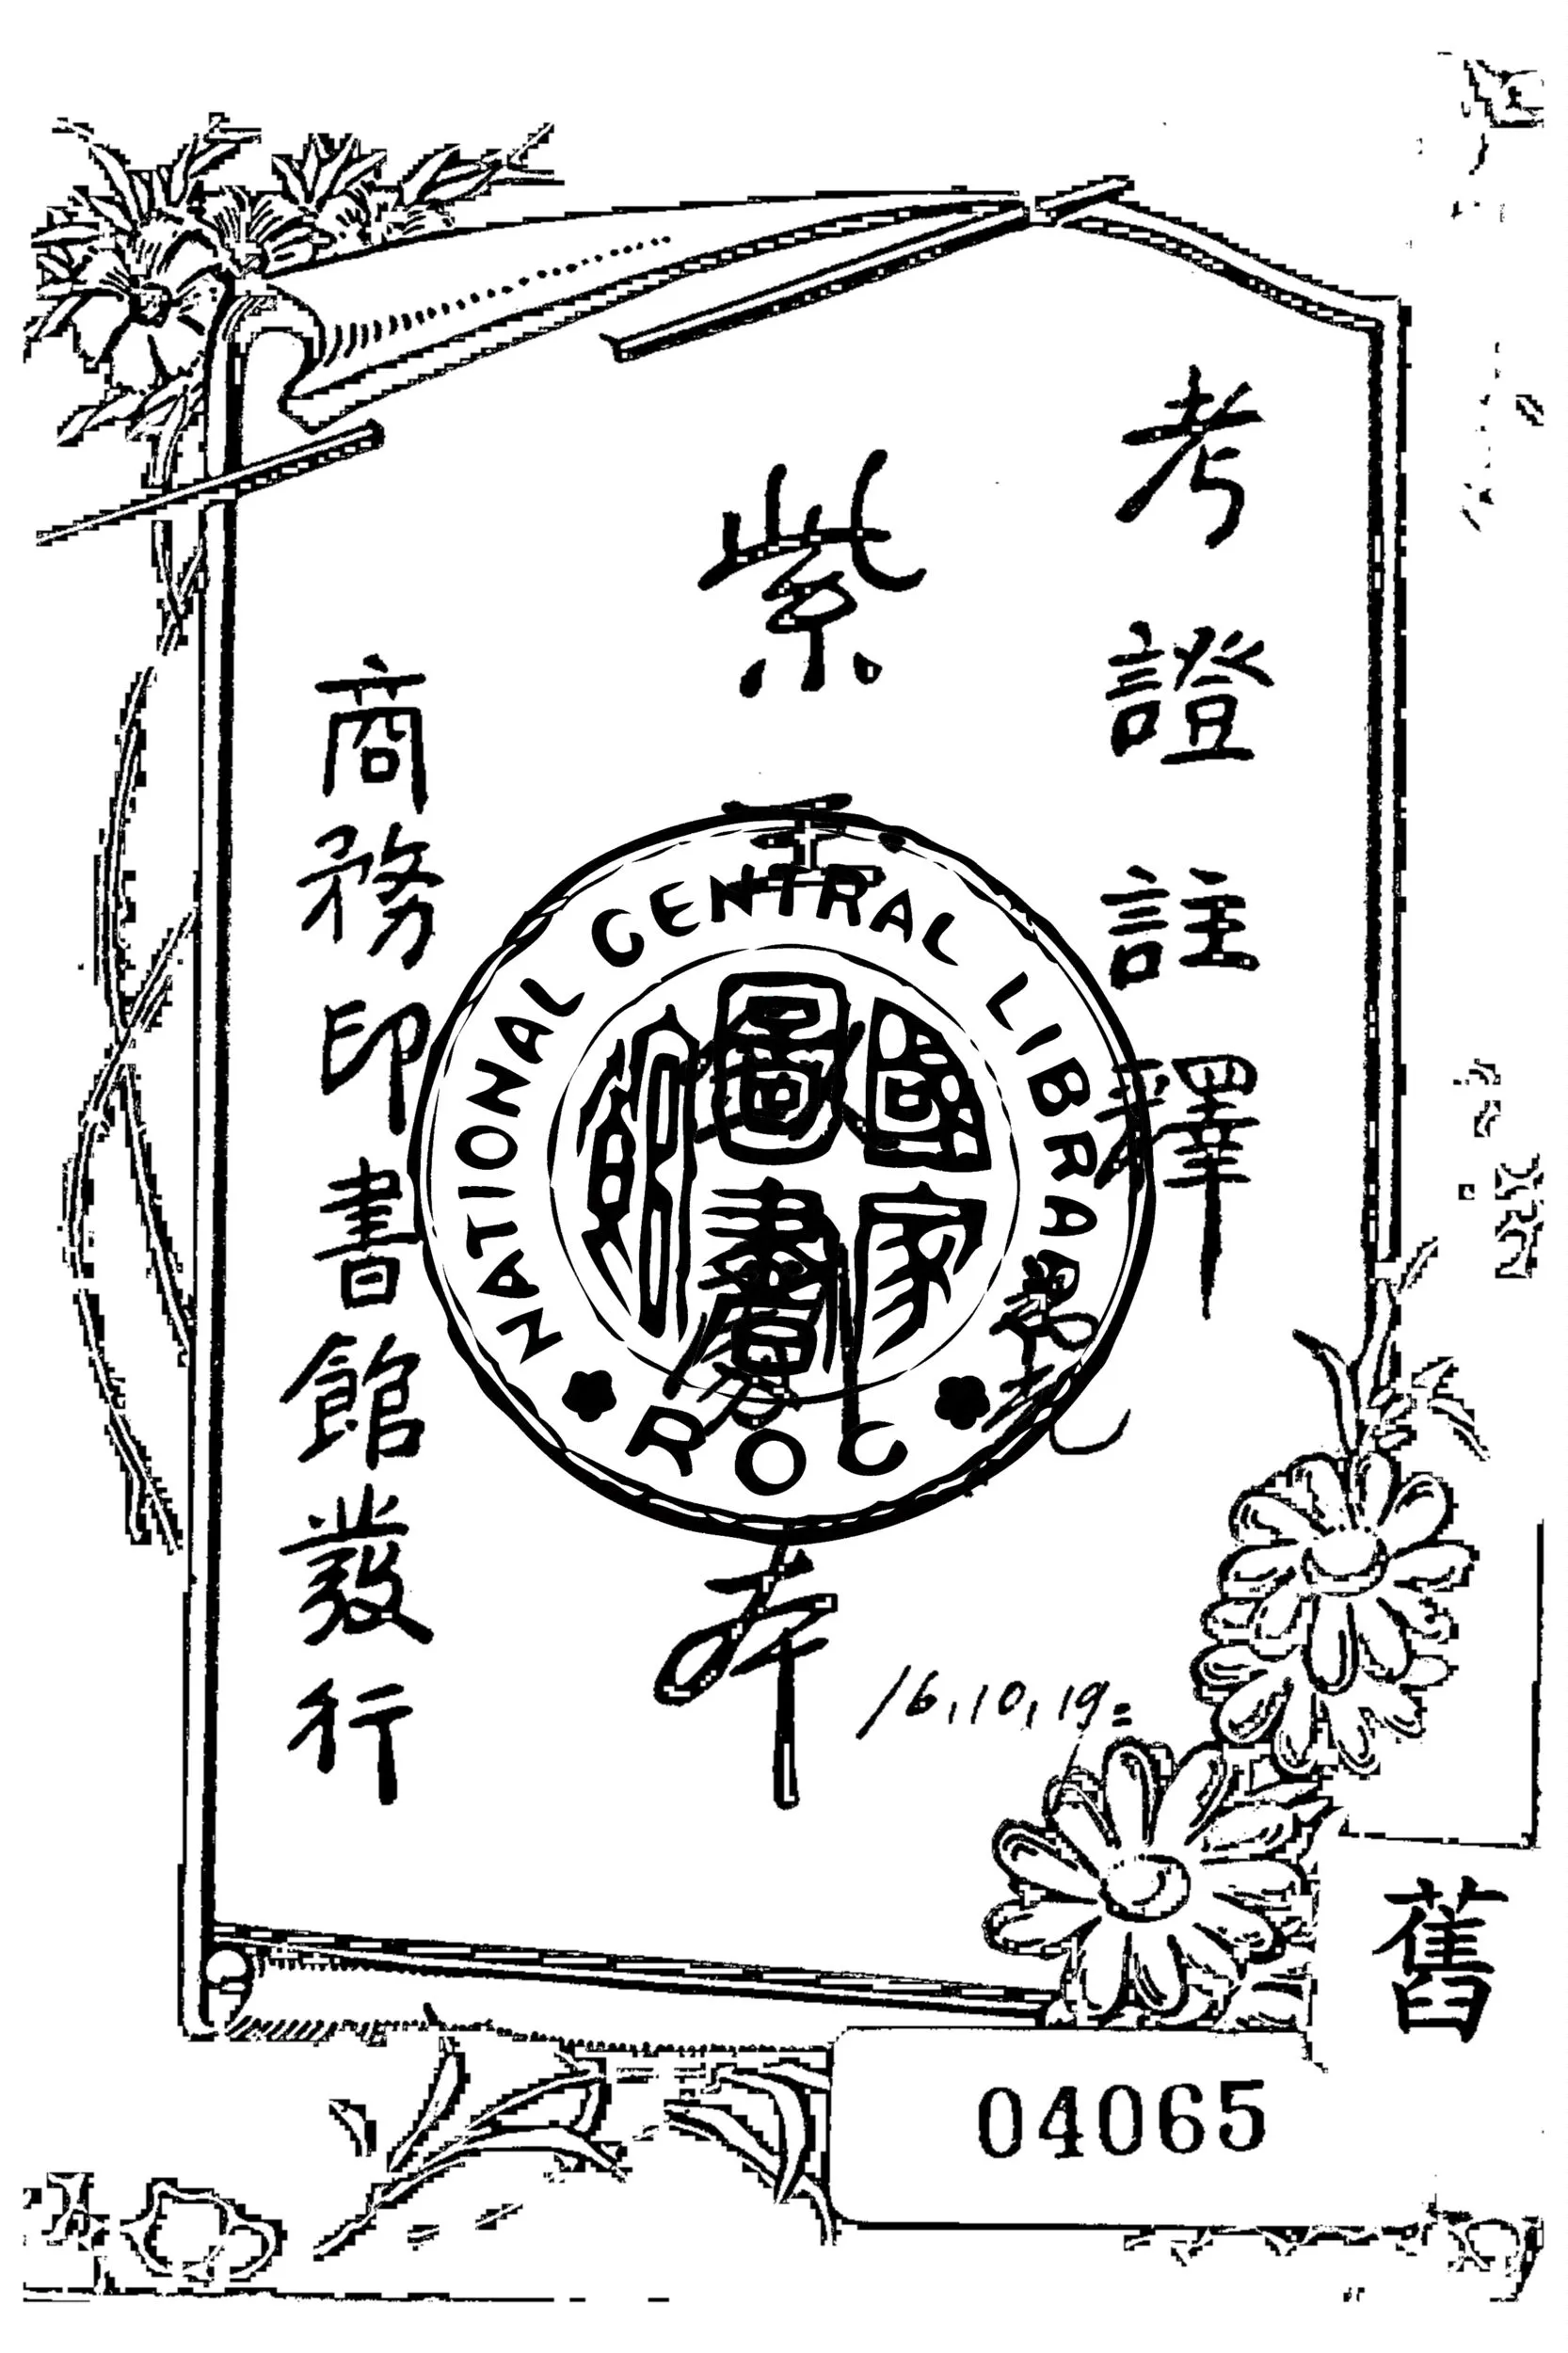 考證註釋
紫
商務印書館發行
NATIONAL CENTRAL LIBRARY
國家
圖書
館
ROC
16,10,19.
舊
04065